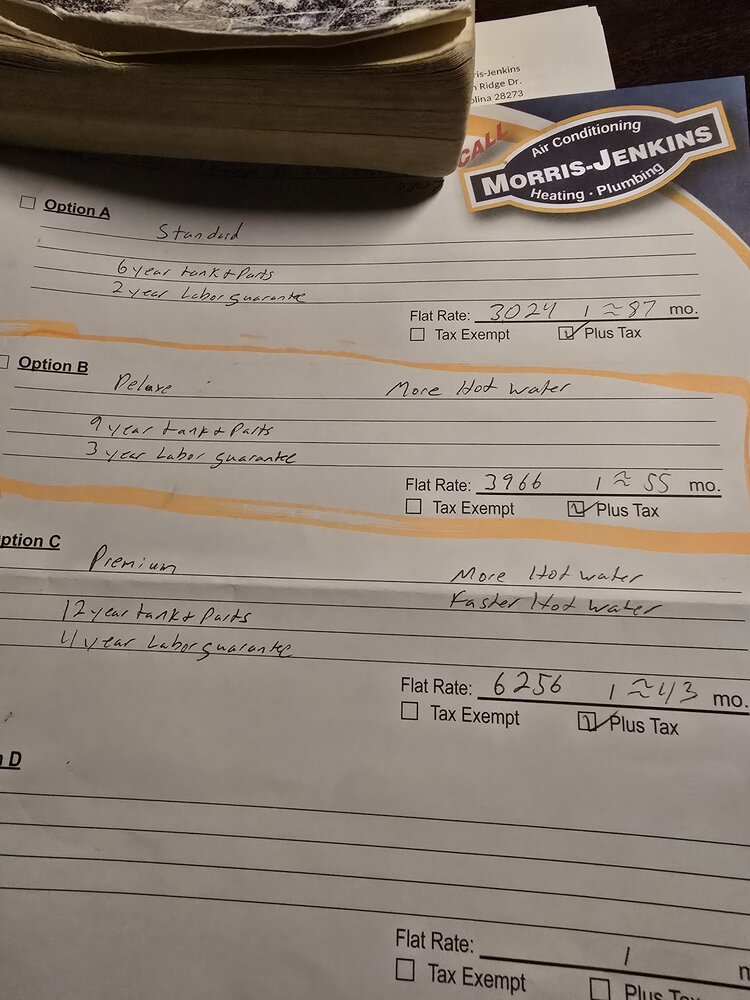 is-Jenkins
Ridge Dr.
olina 28273
CALL
Air Conditioning
MORRIS-JENKINS
Heating · Plumbing
Option A
Standard
6 year tank + Parts
2 year Labor guarantee
Flat Rate: 3024 / ≈ 87 mo.
Tax Exempt Plus Tax
Option B
Deluxe More Hot water
9 year tank + Parts
3 year Labor guarantee
Flat Rate: 3966 / ≈ 55 mo.
Tax Exempt Plus Tax
ption C
Premium More Hot water
Faster Hot water
12 year tank + Parts
4 year Labor guarantee
Flat Rate: 6256 / ≈ 43 mo.
Tax Exempt Plus Tax
n D
Flat Rate: / m
Tax Exempt Plus Tax